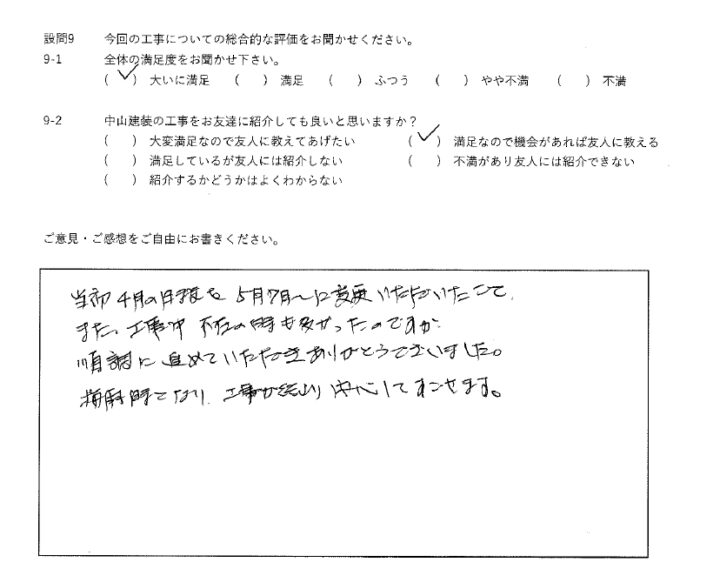 設問9 今回の工事についての総合的な評価をお聞かせください。
9-1 全体の満足度をお聞かせ下さい。
(✓) 大いに満足 ( ) 満足 ( ) ふつう ( ) やや不満 ( ) 不満
9-2 中山建装の工事をお友達に紹介しても良いと思いますか？
( ) 大変満足なので友人に教えてあげたい (✓) 満足なので機会があれば友人に教える
( ) 満足しているが友人には紹介しない ( ) 不満があり友人には紹介できない
( ) 紹介するかどうかはよくわからない
ご意見・ご感想をご自由にお書きください。
当初4月の日程を 5月7日〜に変更いただいたこと、
また、工事中 不在の時も多かったのですが、
順調に進めていただきありがとうございました。
梅雨時となり、工事が終わり安心してすごせます。